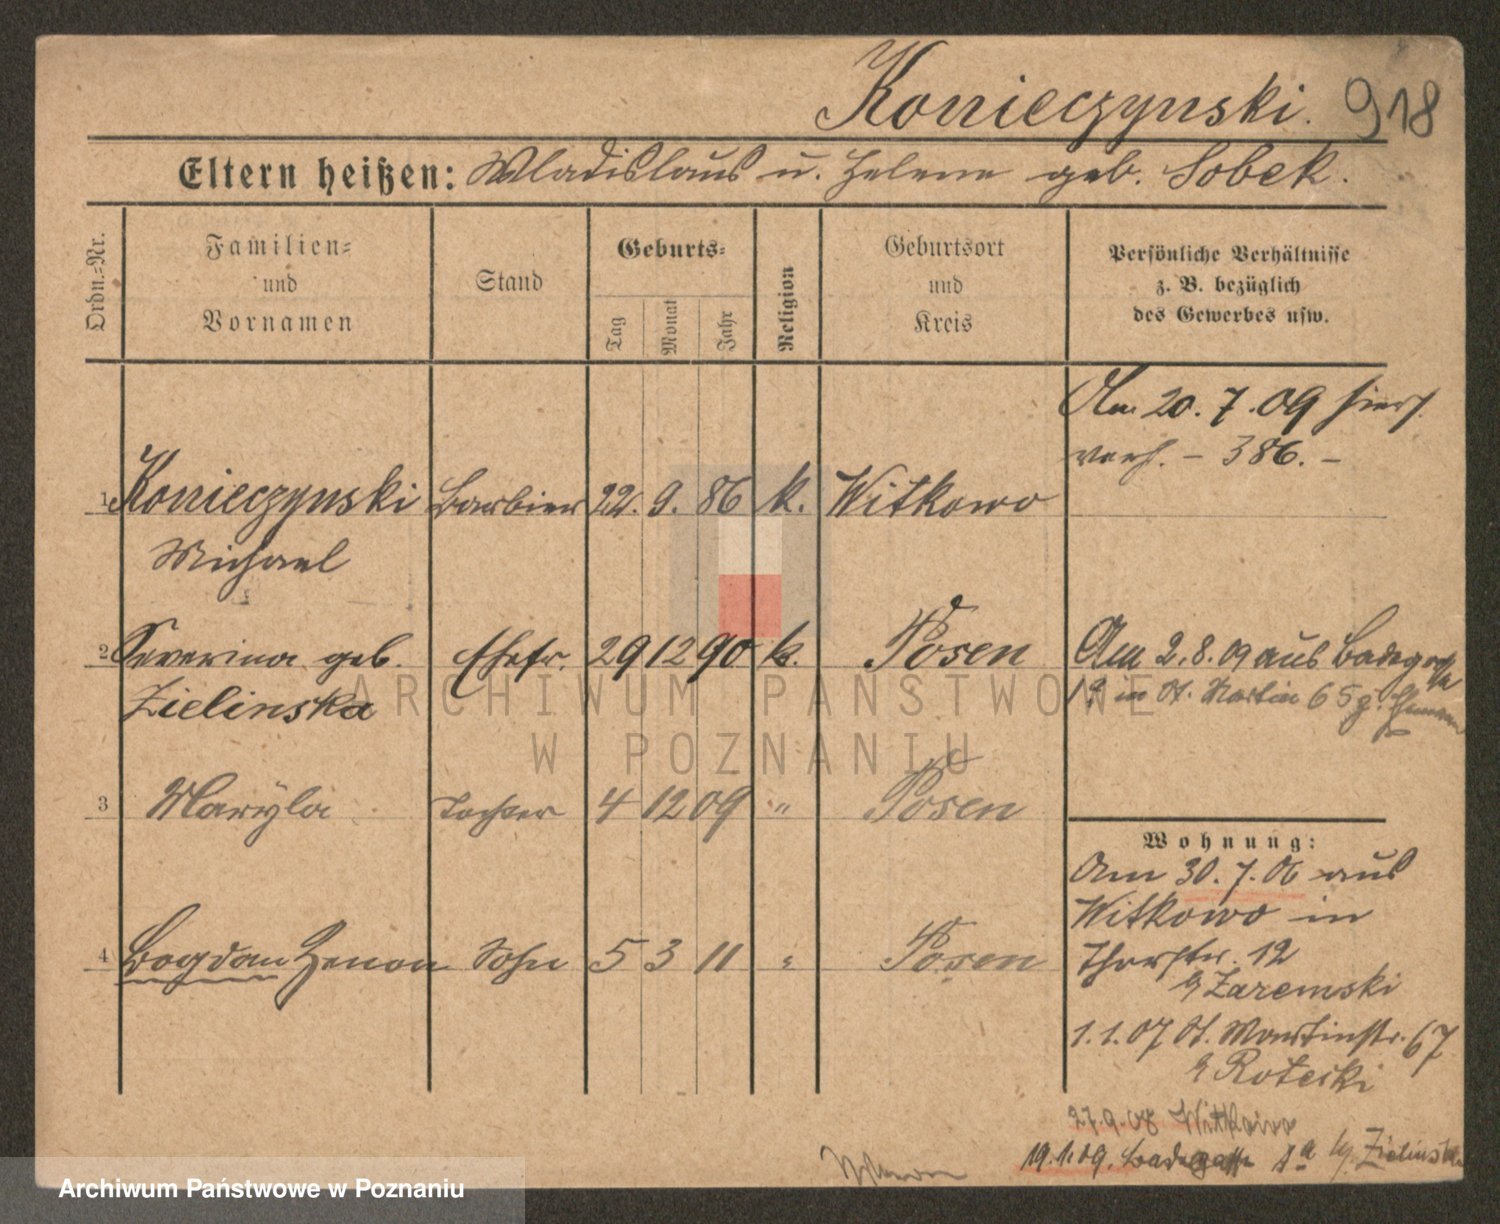 Konieczynski. 918
Eltern heißen: Wladislaus u. Helene geb. Sobek.
Ordn.=Nr.
Familien=
und
Vornamen
Stand
Geburts=
Tag
Monat
Jahr
Religion
Geburtsort
und
Kreis
Persönliche Verhältnisse
z. B. bezüglich
des Gewerbes usw.
Am 20.7.09 hiers.
verh. – 386. –
1 Konieczynski Barbier 22. 9. 86 k. Witkowo
Michael
2 Severina geb. Ehefr. 29 12 90 k. Posen
Zielinska
Am 2.8.09 aus Badegasse
1a in St. Martin 65 g.
3 Maryla Tochter 4 12 09 " Posen
4 Bogdan Zenon Sohn 5 3 11 " Posen
Wohnung:
Am 30.7.06 aus
Witkowo in
Thorstr. 12
b/ Zaremski
1.1.07 St. Martinstr. 67
b/ Rotecki
27.9.08 Witkowo
19.1.09. Badegasse 1a b/ Zielinska
ARCHIWUM PAŃSTWOWE
W POZNANIU
Archiwum Państwowe w Poznaniu